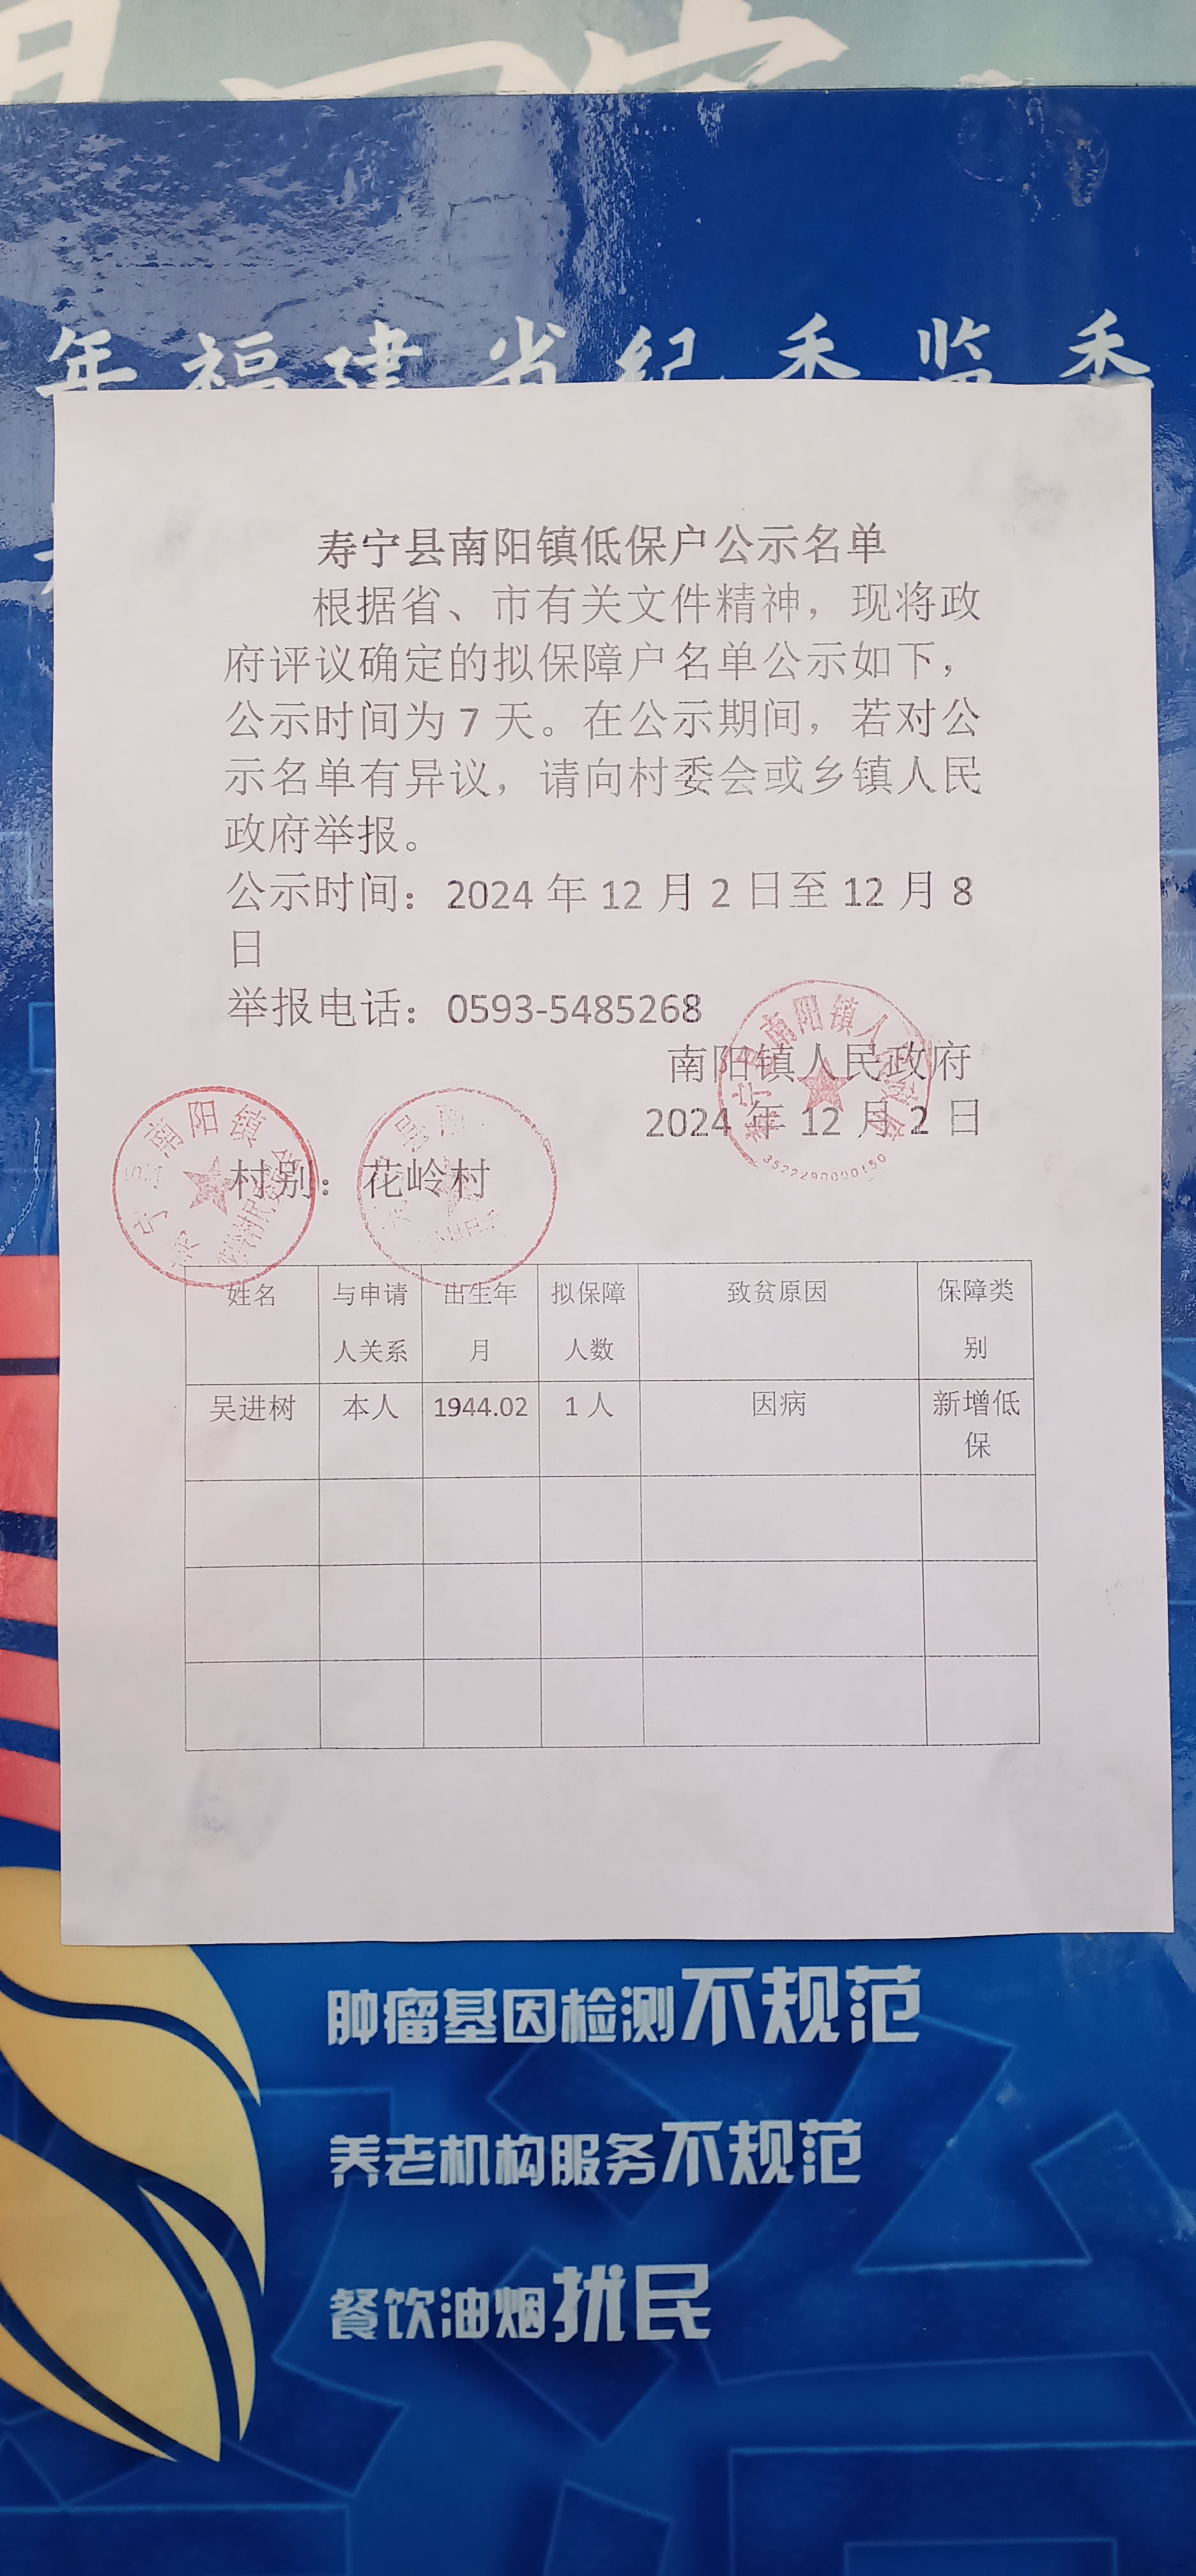 年福建省纪委监委
寿宁县南阳镇低保户公示名单
根据省、市有关文件精神，现将政
府评议确定的拟保障户名单公示如下，
公示时间为 7 天。在公示期间，若对公
示名单有异议，请向村委会或乡镇人民
政府举报。
公示时间：2024 年 12 月 2 日至 12 月 8
日
举报电话：0593-5485268
南阳镇人民政府
2024 年 12 月 2 日
宁县南阳镇人民政府
3522290000150
村别：花岭村
宁县南阳镇
姓名 与申请人关系 出生年月 拟保障人数 致贫原因 保障类别
吴进树 本人 1944.02 1 人 因病 新增低保
肿瘤基因检测不规范
养老机构服务不规范
餐饮油烟扰民